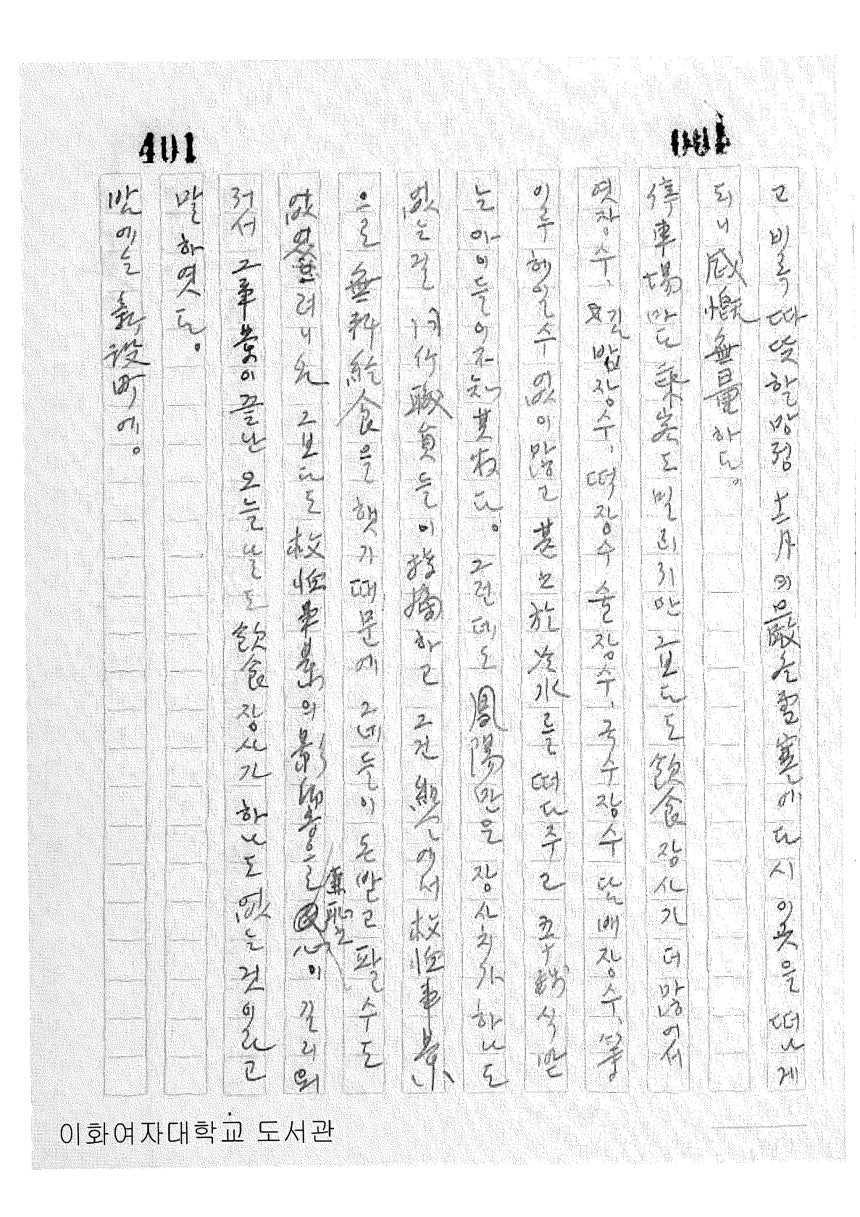 401
고 비록 따뜻할망정 十二月의 嚴冬雪寒에 다시 이곳을 떠나게
되니 感慨無量하다。
停車場마다 乘客도 밀리지만 그보다도 飮食장사가 더 많어서
엿장수, 김밥장수, 떡장수 술장수, 국수장수 담배장수,
이루 헤일수 없이 많고 甚至於 冷水를 떠다주고 五十錢식 받
는 아이들이 不知其数다。 그런데도 鳳陽만은 장사치가 하나도
없는걸 同行 職員들이 指摘하고 그건 여기서 救恤事業
으로 無料給食을 햇기 때문에 그네들이 돈받고 팔수도
없엇으려니와 그보다도 救恤事業의 影響으로 民心이
져서 그 事業이 끝난 오늘날도 飮食장사가 하나도 없는 것이라고
말하엿다。
밤에는 新設町에。
이화여자대학교 도서관